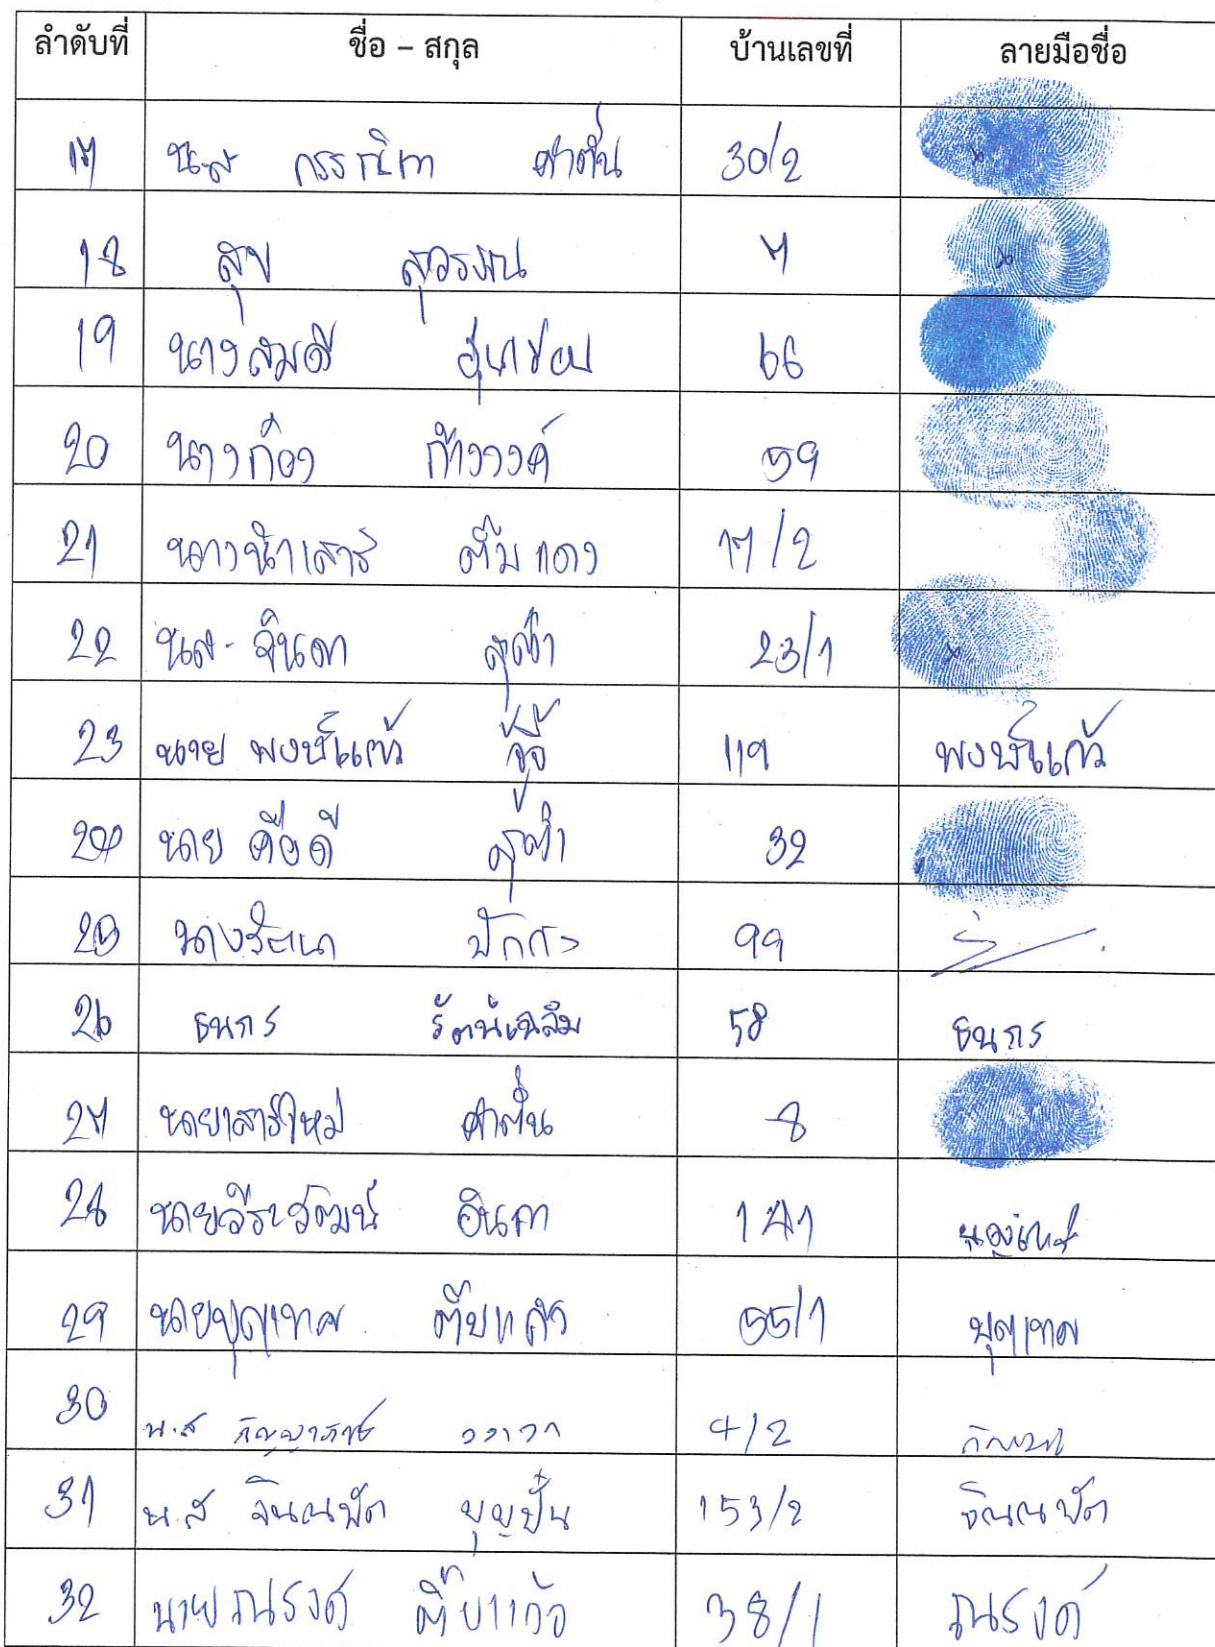 ลำดับที่ ชื่อ – สกุล บ้านเลขที่ ลายมือชื่อ
17 น.ส กรรณิกา คำตั๋น 30/2
18 สุข สุวรรณ 7
19 นางสมดี 66
20 นางก๋อง ก๋าวงค์ 59
21 นางนำเสาร์ ติ๊บแดง 17/2
22 นส. จินดา สุต๋า 23/1
23 นาย พงษ์แก้ว จู้จี้ 119 พงษ์แก้ว
24 นาย คือดี สุต๋า 32
25 นาง 99
26 ธนกร รัตน์เฉลิม 58 ธนกร
27 นายเสาร์ใหม่ คำตั๋น 8
28 นายวีระวัฒน์ อินตา 141
29 นายบุญเทพ ติ๊บแก้ว 55/1 บุญเทพ
30 น.ส 4/2
31 น.ส จินณพัต บุญปั๋น 153/2 จิณณพัต
32 นายณรงค์ ติ๊บแก้ว 38/1 ณรงค์